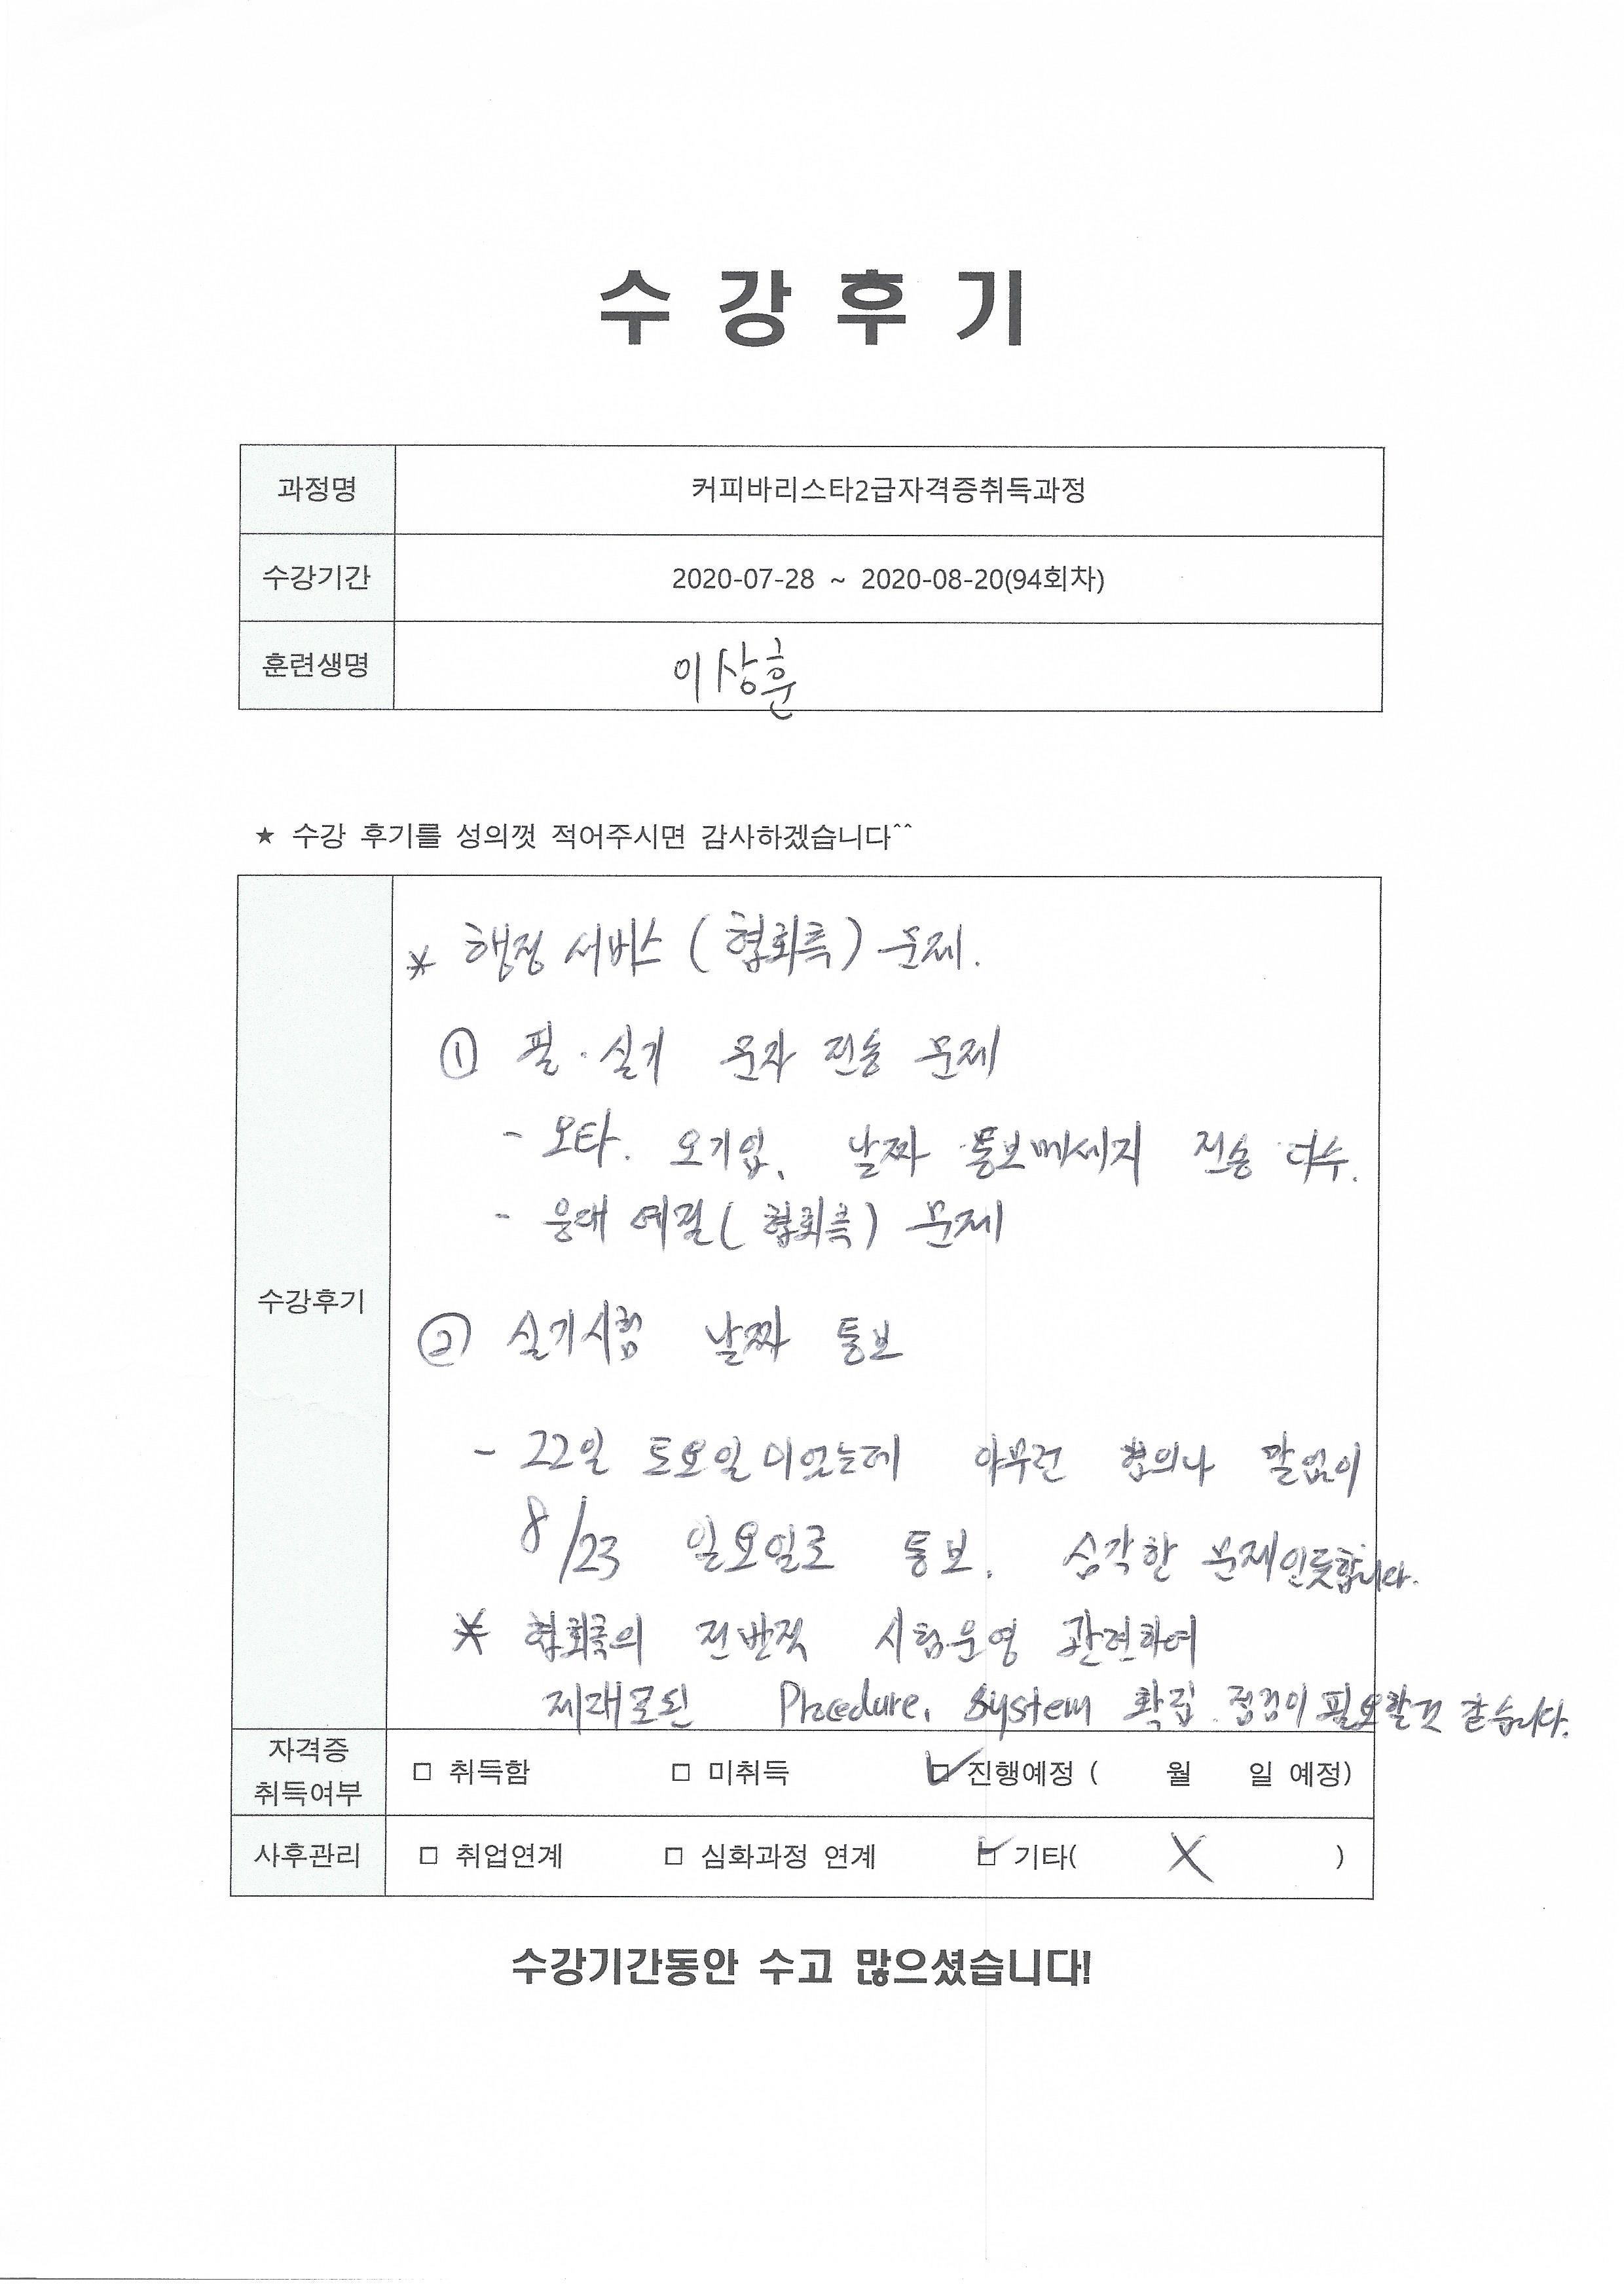 수 강 후 기
과정명 커피바리스타2급자격증취득과정
수강기간 2020-07-28 ~ 2020-08-20(94회차)
훈련생명 이상훈
★ 수강 후기를 성의껏 적어주시면 감사하겠습니다^^
수강후기
* 행정 서비스 (협회측) 문제.
① 필·실기 문자 전송 문제
- 오타. 오기입. 날짜 통보메세지 전송 다수.
- 응대 예절(협회측) 문제
② 실기시험 날짜 통보
- 22일 토요일이었는데 아무런 협의나 말없이
8/23 일요일로 통보. 심각한 문제인듯합니다.
* 협회측의 전반적 시험운영 관련하여
제대로된 Procedure, System 확립 점검이 필요할것 같습니다.
자격증 취득여부 □ 취득함 □ 미취득 ☑ 진행예정 ( 월 일 예정)
사후관리 □ 취업연계 □ 심화과정 연계 ☑ 기타( X )
수강기간동안 수고 많으셨습니다!